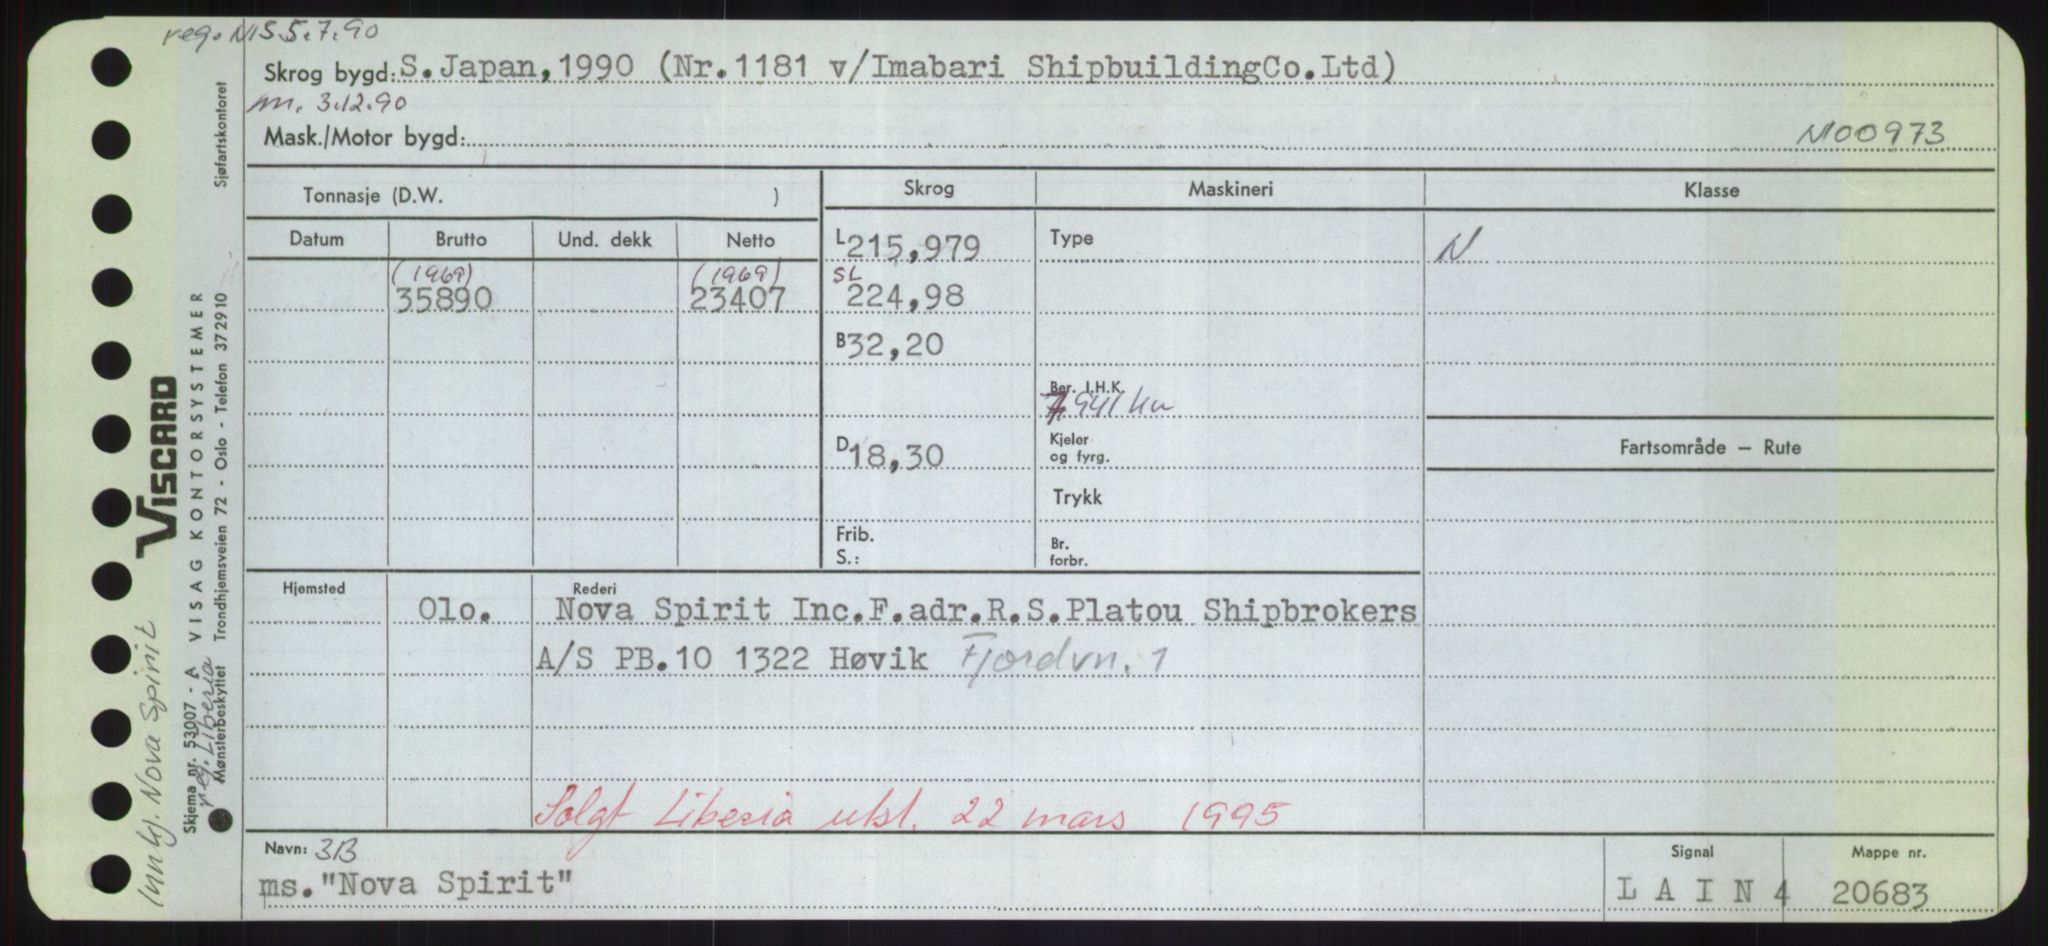 reg. NIS 5.7.90
Skrog bygd: S. Japan, 1990 (Nr. 1181 v/Imabari ShipbuildingCo.Ltd)
m. 3.12.90
Mask./Motor bygd:
N00973
Tonnasje (D.W. )
Skrog
Maskineri
Klasse
Datum Brutto Und. dekk Netto
L 215,979
Type
N
(1969) (1969)
35890 23407
SL 224,98
B 32,20
Ber. I.H.K.
7941 kw
D 18,30
Kjeler
og fyrg.
Fartsområde — Rute
Trykk
Frib.
S.:
Br.
forbr.
Hjemsted Rederi
Olo. Nova Spirit Inc.F.adr.R.S.Platou Shipbrokers
A/S PB.10 1322 Høvik Fjordvn. 1
Solgt Liberia utst. 22 mars 1995
Navn: 3B
ms."Nova Spirit"
Signal
L A I N 4
Mappe nr.
20683
VISCARD
Skjema nr. 53007 - A VISAG KONTORSYSTEMER
Mønsterbeskyttet Trondhjemsveien 72 - Oslo - Telefon 372910 Sjøfartskontoret
Nova Spirit
reg. Liberia